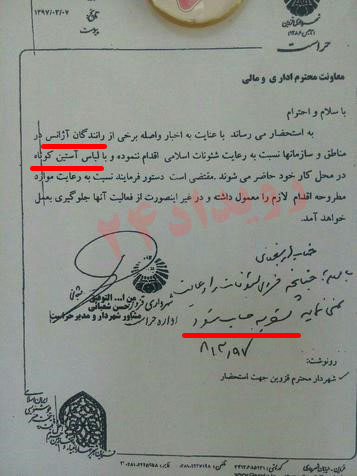 شهرداری قزوین
تاریخ ۱۳۹۷/۰۳/۰۷
پیوست
حراست
معاونت محترم اداری و مالی
با سلام و احترام
به استحضار می رساند با عنایت به اخبار واصله برخی از رانندگان آژانس در
مناطق و سازمانها نسبت به رعایت شئونات اسلامی اقدام ننموده و با لباس آستین کوتاه
در محل کار خود حاضر می شوند. مقتضی است دستور فرمایید نسبت به رعایت موارد
مطروحه اقدام لازم را معمول داشته و در غیر اینصورت از فعالیت آنها جلوگیری بعمل
خواهد آمد.
رویداد۲۴
من ا... التوفیق
حسن شعبانی
مشاور شهردار و مدیر حراست
شهرداری قزوین
اداره حراست
رونوشت:
شهردار محترم قزوین جهت استحضار